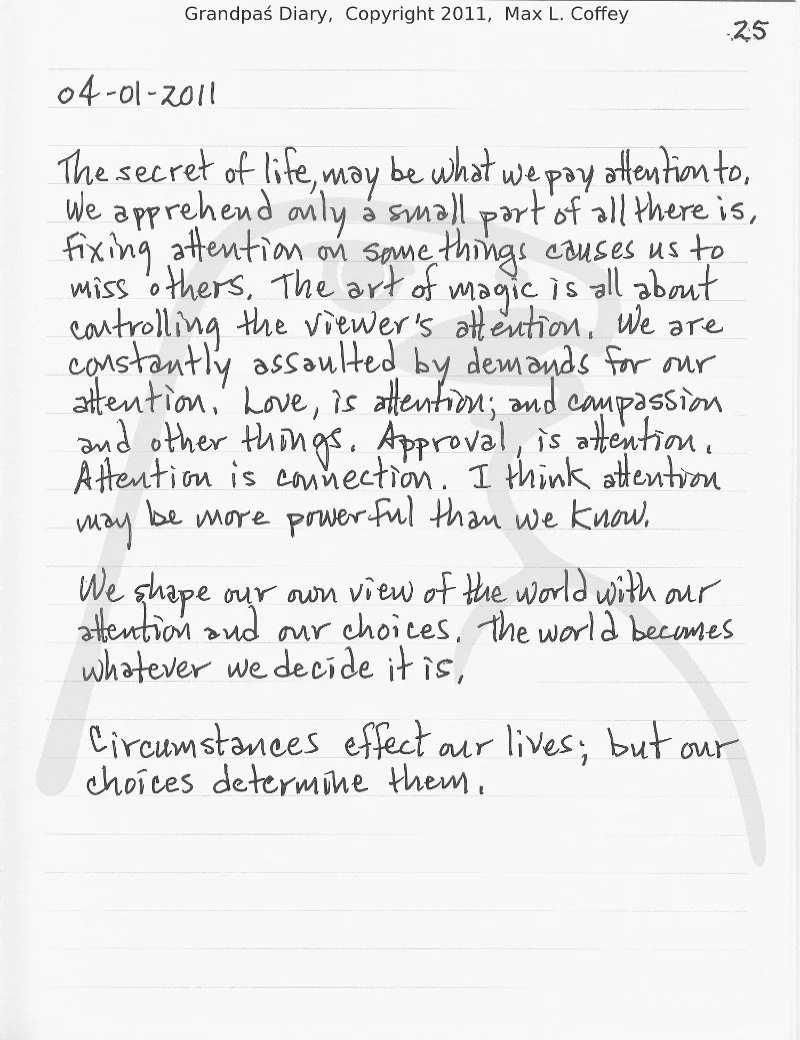 Grandpaś Diary, Copyright 2011, Max L. Coffey
25
04-01-2011
The secret of life, may be what we pay attention to.
We apprehend only a small part of all there is,
fixing attention on some things causes us to
miss others. The art of magic is all about
controlling the viewer's attention. We are
constantly assaulted by demands for our
attention. Love, is attention; and compassion
and other things. Approval, is attention.
Attention is connection. I think attention
may be more powerful than we know.
We shape our own view of the world with our
attention and our choices. The world becomes
whatever we decide it is,
Circumstances effect our lives; but our
choices determine them.